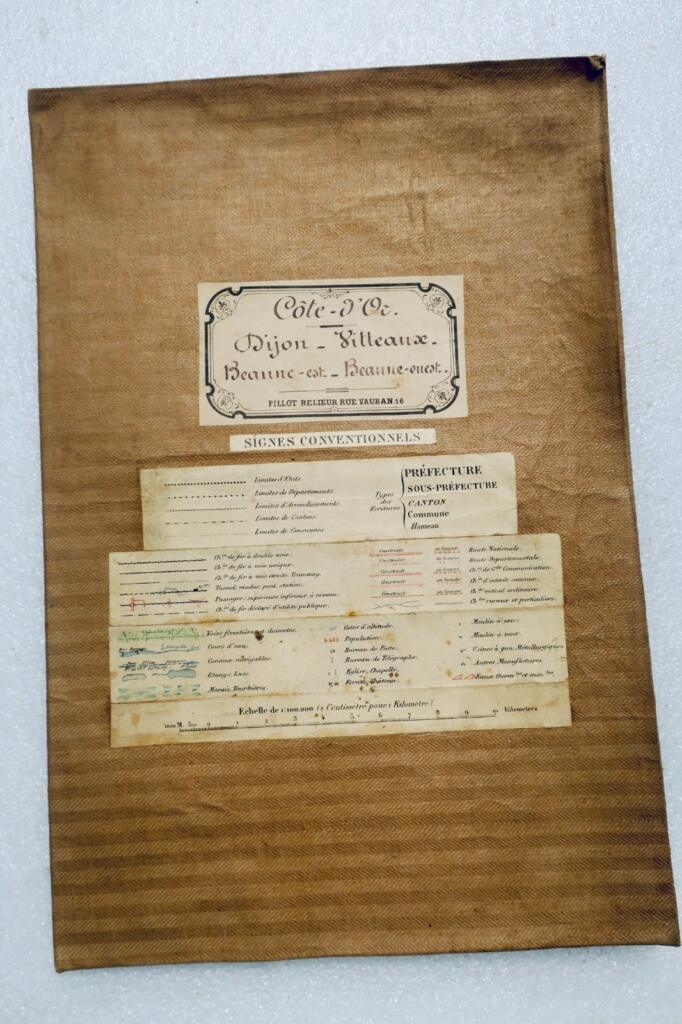 Côte-d'Or.
Dijon - Vitteaux.
Beaune-est - Beaune-ouest.
PILLOT RELIEUR RUE VAUBAN.16
SIGNES CONVENTIONNELS
Limites d'Etats.
Limites de Départements.
Limites d'Arrondissements
Limites de Cantons.
Limites de Communes.
Types des Ecritures
PRÉFECTURE
SOUS-PRÉFECTURE
CANTON
Commune
Hameau
Ch.ins de fer à double voie.
Ch.ins de fer à voie unique.
Ch.ins de fer à voie étroite. Tramway.
Tunnel, viaduc, pont, station.
Passages: supérieur, inférieur, à niveau.
Ch.ins de fer déclaré d'utilité publique.
Construite
Construite
Construit
Construit
Construit
en lacune
en lacune
en lacune
en lacune
en lacune
Route Nationale.
Route Départementale.
Ch.in de G.de Communication.
Ch.in d'intérêt commun.
Ch.in vicinal ordinaire.
Ch.ins ruraux et particuliers.
Voies forestières et dessertes.
Cours d'eau.
Canaux navigables.
Etangs, Lacs.
Marais, Tourbières.
Cotes d'altitude.
Population.
Bureau de Poste.
Bureau de Télégraphe.
Eglise, Chapelle.
Ferme, Château.
Moulin à eau.
Moulin à vent.
Usines à gaz, Métallurgiques
Autres Manufactures.
Eaux therm.les et min.les
Echelle de 1:100.000 (1 Centimètre pour 1 Kilomètre)
1000 M. 500 0 1 2 3 4 5 6 7 8 9 10 Kilomètres